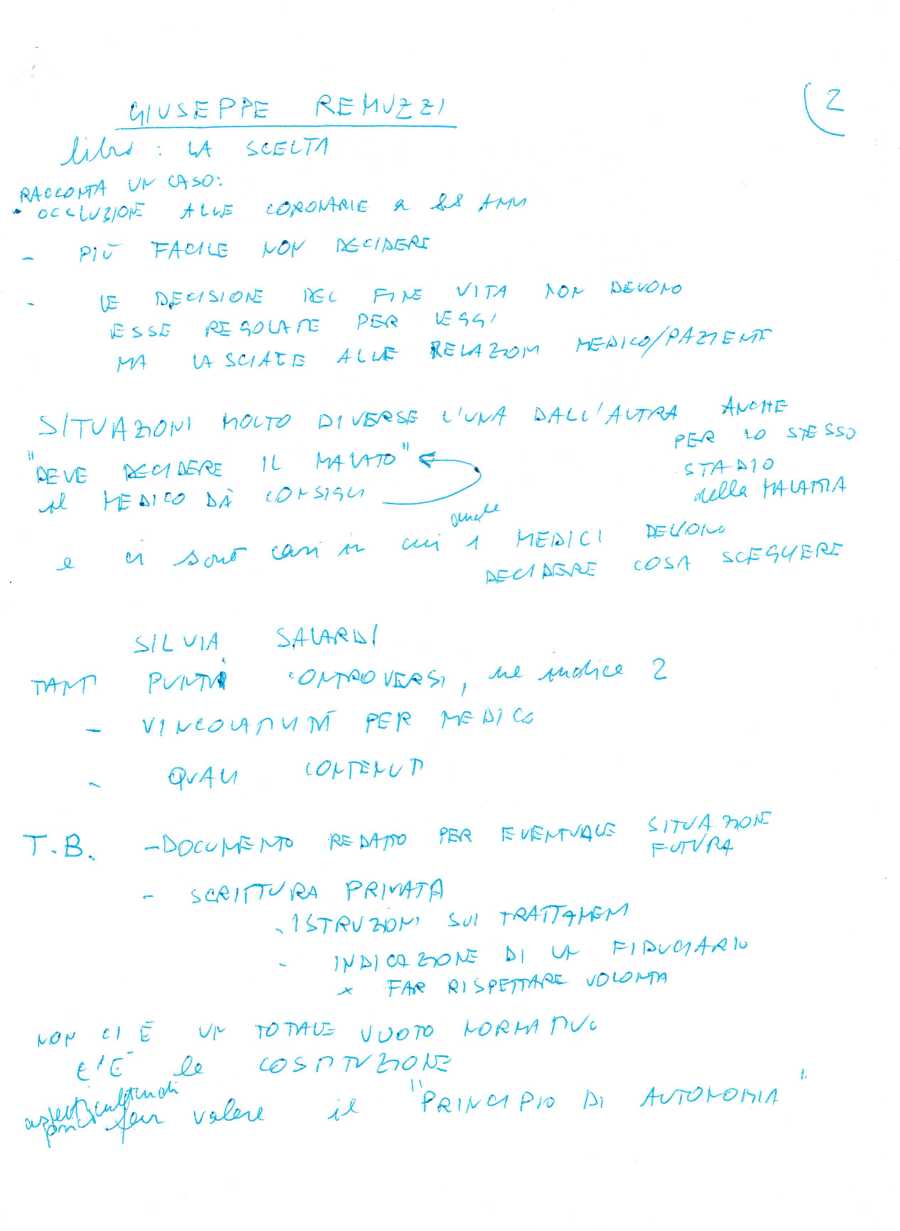 GIUSEPPE REMUZZI
2
libro : LA SCELTA
RACCONTA UN CASO:
• OCCLUZIONE ALLE CORONARIE a 88 ANNI
- PIÙ FACILE NON DECIDERE
- LE DECISIONE DEL FINE VITA NON DEVONO
ESSE REGOLATE PER LEGGI
MA LASCIATE ALLE RELAZIONI MEDICO/PAZIENTE
SITUAZIONI MOLTO DIVERSE L'UNA DALL'ALTRA ANCHE
PER LO STESSO
STADIO
della MALATTIA
"DEVE DECIDERE IL MALATO"
il MEDICO DÀ CONSIGLI
e ci sono casi in cui anche i MEDICI DEVONO
DECIDERE COSA SCEGLIERE
SILVIA SALARDI
TANTI PUNTI CONTROVERSI, ne indice 2
- VINCOLANTI PER MEDICO
- QUALI CONTENUTI
T.B. - DOCUMENTO REDATTO PER EVENTUALE SITUAZIONE
FUTURA
- SCRITTURA PRIVATA
- ISTRUZIONI SUI TRATTAMENTI
- INDICAZIONE DI UN FIDUCIARIO
x FAR RISPETTARE VOLONTA
NON CI È UN TOTALE VUOTO NORMATIVO
C'È la COSTITUZIONE
far valere il "PRINCIPIO DI AUTONOMIA"